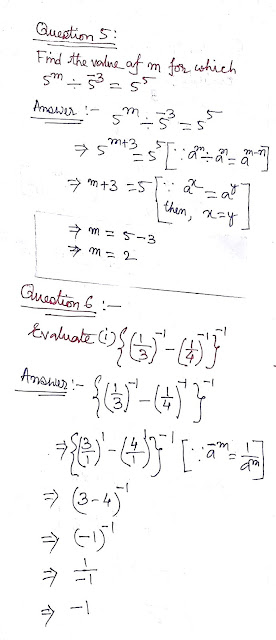 Question 5:
Find the value of m for which
5^m ÷ 5^-3 = 5^5
Answer :- 5^m ÷ 5^-3 = 5^5
⇒ 5^m+3 = 5^5 [∵ a^m ÷ a^n = a^m-n]
⇒ m+3 = 5 [∵ a^x = a^y
then, x=y]
⇒ m = 5-3
⇒ m = 2
Question 6 :-
Evaluate (i) {(1/3)^-1 - (1/4)^-1}^-1
Answer :- {(1/3)^-1 - (1/4)^-1}^-1
⇒ {(3/1)^1 - (4/1)^1}^-1 [∵ a^-m = 1/a^m]
⇒ (3-4)^-1
⇒ (-1)^-1
⇒ 1/-1
⇒ -1